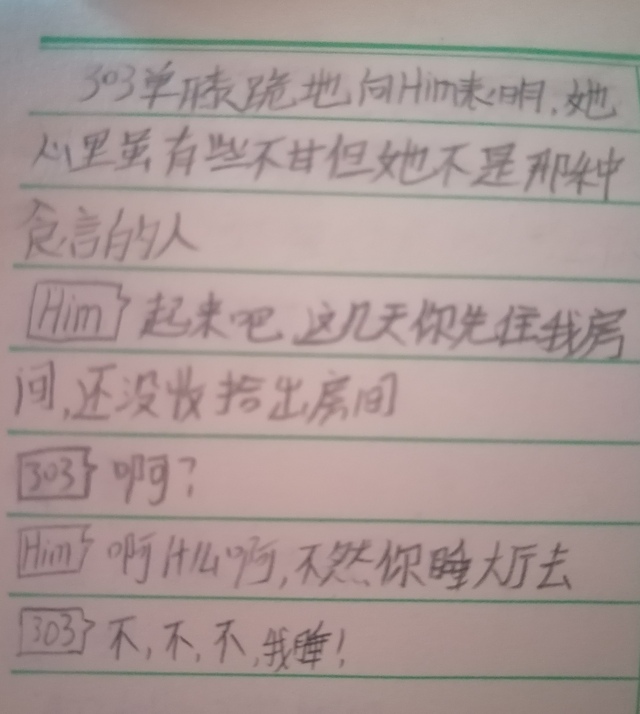 303单膝跪地向Him表明,她
心里虽有些不甘但她不是那种
食言的人
Him 起来吧,这几天你先住我房
间,还没收拾出房间
303 啊?
Him 啊什么啊,不然你睡大厅去
303 不,不,不,我睡!